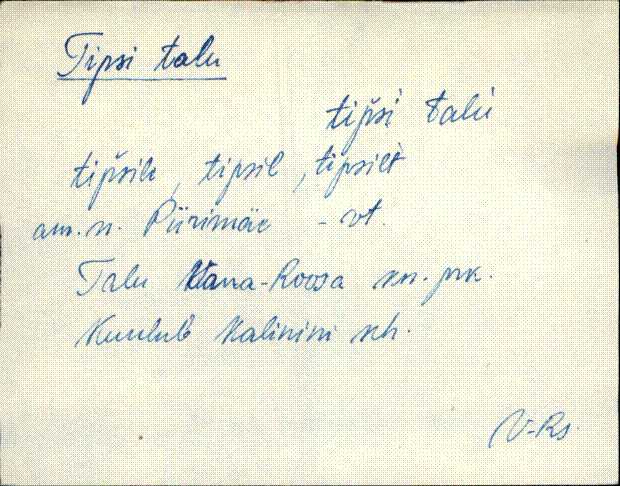 Tipsi talu
tipši talu
tipšile, tipsil, tipsilt
am. n. Piirimäe - vt.
Talu Vana-Roosa sn. prk.
Kuulub Kalinini kh.
V-Rs.